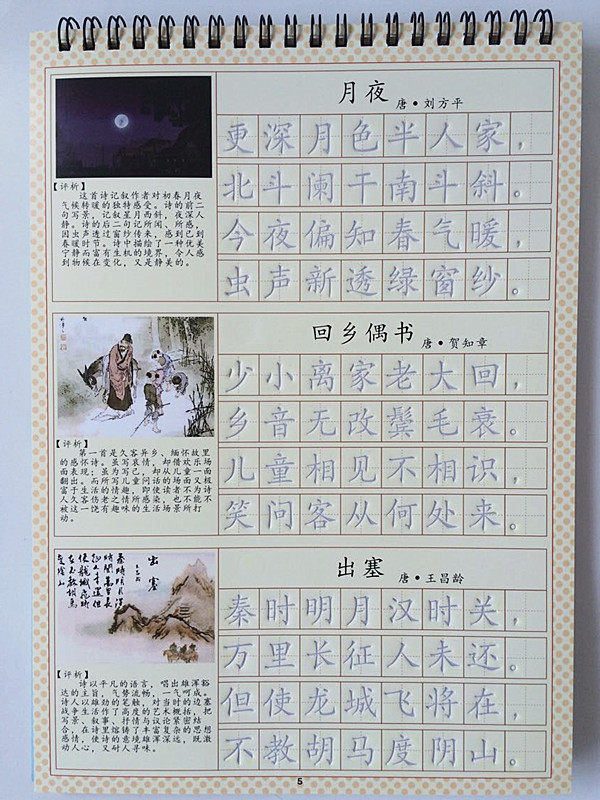 月夜
唐•刘方平
更深月色半人家，
北斗阑干南斗斜。
今夜偏知春气暖，
虫声新透绿窗纱。
【评析】
这首诗记叙作者对初春月夜
气候转暖的独特感受。诗的前二
句写景，记叙星月西斜，夜深人
静。诗的后二句记所闻、所感，
因虫声透过窗纱传来，感到已到
春暖时节。诗中描绘了一种优美
宁静而富有生机的境界，令人感
到物候在变化，又是静美的。
回乡偶书
唐•贺知章
少小离家老大回，
乡音无改鬓毛衰。
儿童相见不相识，
笑问客从何处来。
【评析】
第一首是久客异乡、缅怀故里
的感怀诗。虽写哀情，却借欢乐场
面表现；虽为写己，却从儿童一面
翻出。而所写儿童问话的场面又极
富于生活的情趣，即使读者不为诗
人久客伤老之情所感染，也不能不
被这一饶有趣味的生活场景所打
动。
出塞
唐•王昌龄
秦时明月汉时关，
万里长征人未还。
但使龙城飞将在，
不教胡马度阴山。
出塞
【评析】
诗以平凡的语言，唱出雄浑豁
达的主旨，气势流畅，一气呵成。
诗人以雄劲的笔触，对当时的边塞
战争生活作了高度的艺术概括，把
写景、叙事、抒情与议论紧密结
合，在诗里熔铸了丰富复杂的思想
感情，使诗的意境雄浑深远，既激
动人心，又耐人寻味。
5